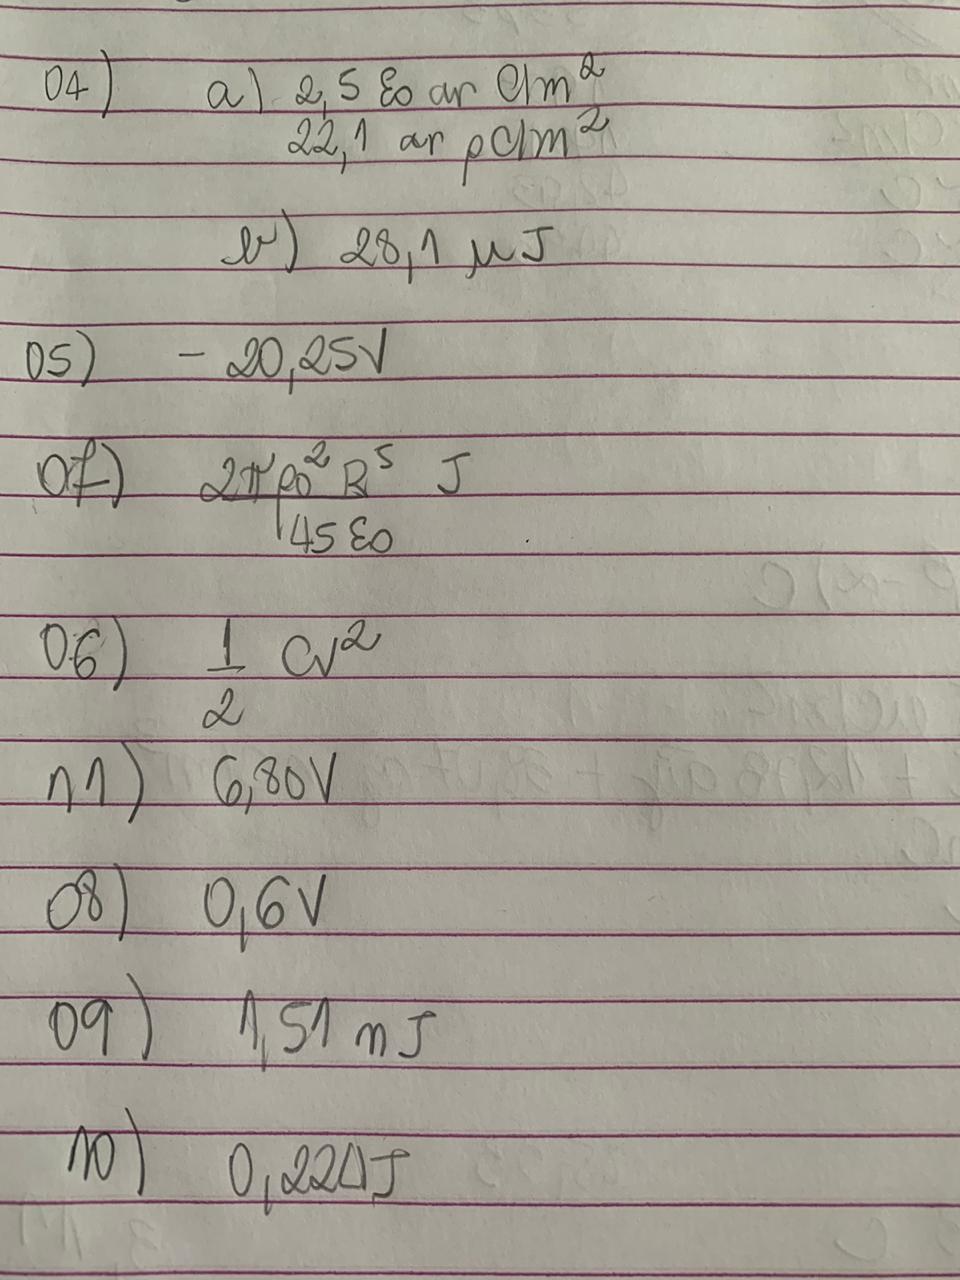 04) a) 2,5 ε0 ar C/m²
22,1 ar pC/m²
b) 28,1 μJ
05) - 20,25V
07) 2πρ0² R⁵ J
45 ε0
06) 1 CV²
2
11) 6,80V
08) 0,6V
09) 1,51 mJ
10) 0,22 J